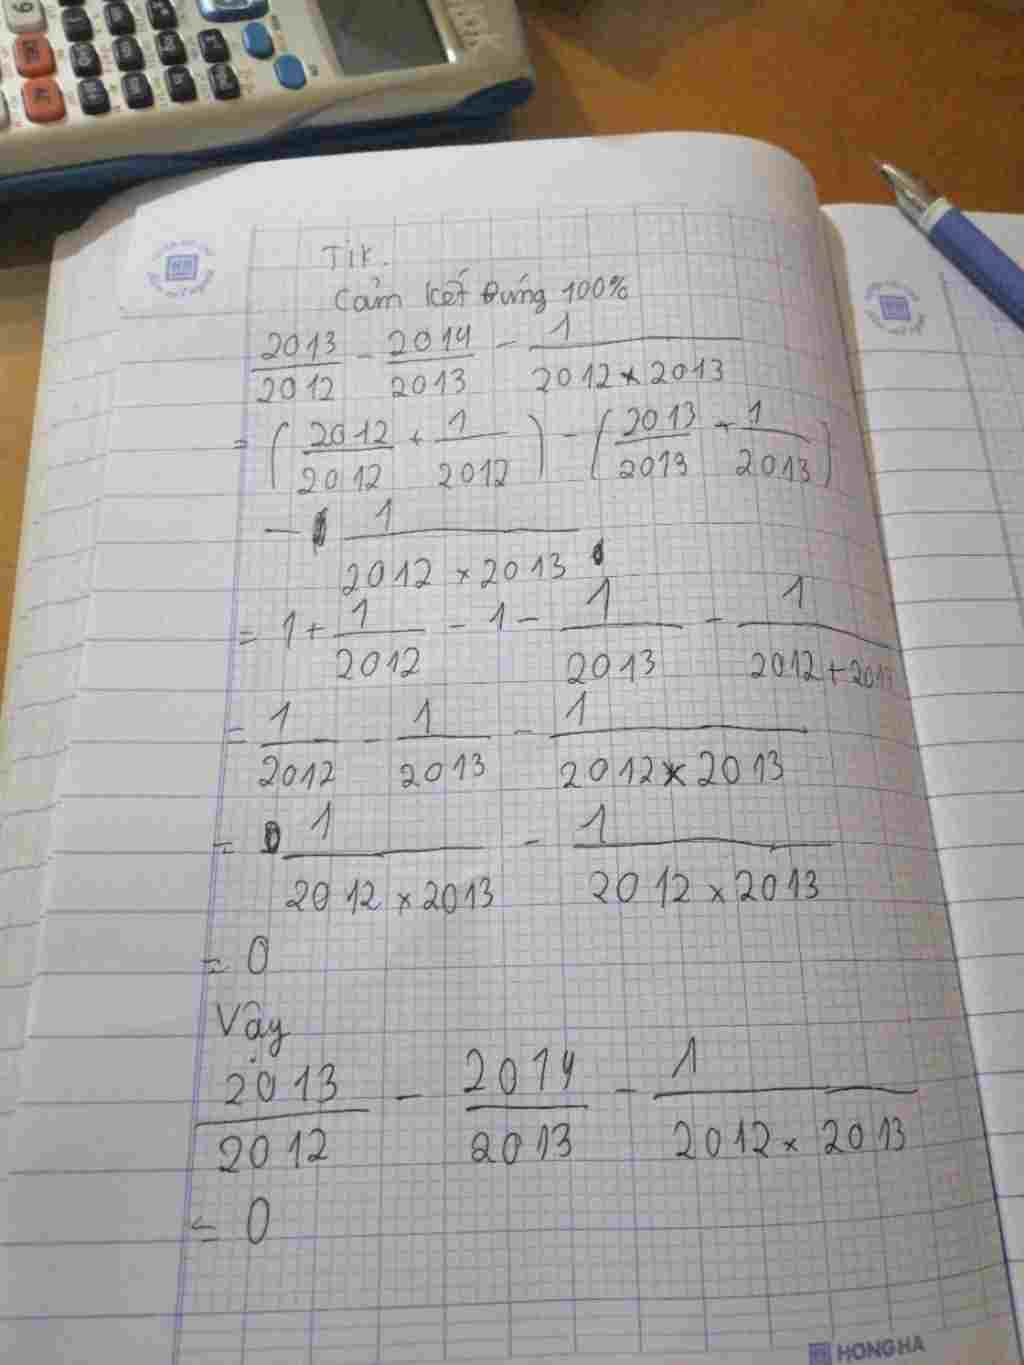 Tik.
Cảm kết Đúng 100%
2013/2012 - 2014/2013 - 1/(2012 × 2013)
= (2012/2012 + 1/2012) - (2013/2013 + 1/2013)
- 1/(2012 × 2013)
= 1 + 1/2012 - 1 - 1/2013 - 1/(2012 + 2013
= 1/2012 - 1/2013 - 1/(2012 × 2013)
= 1/(2012 × 2013) - 1/(2012 × 2013)
= 0
Vậy
2013/2012 - 2014/2013 - 1/(2012 × 2013)
= 0
HONG HA